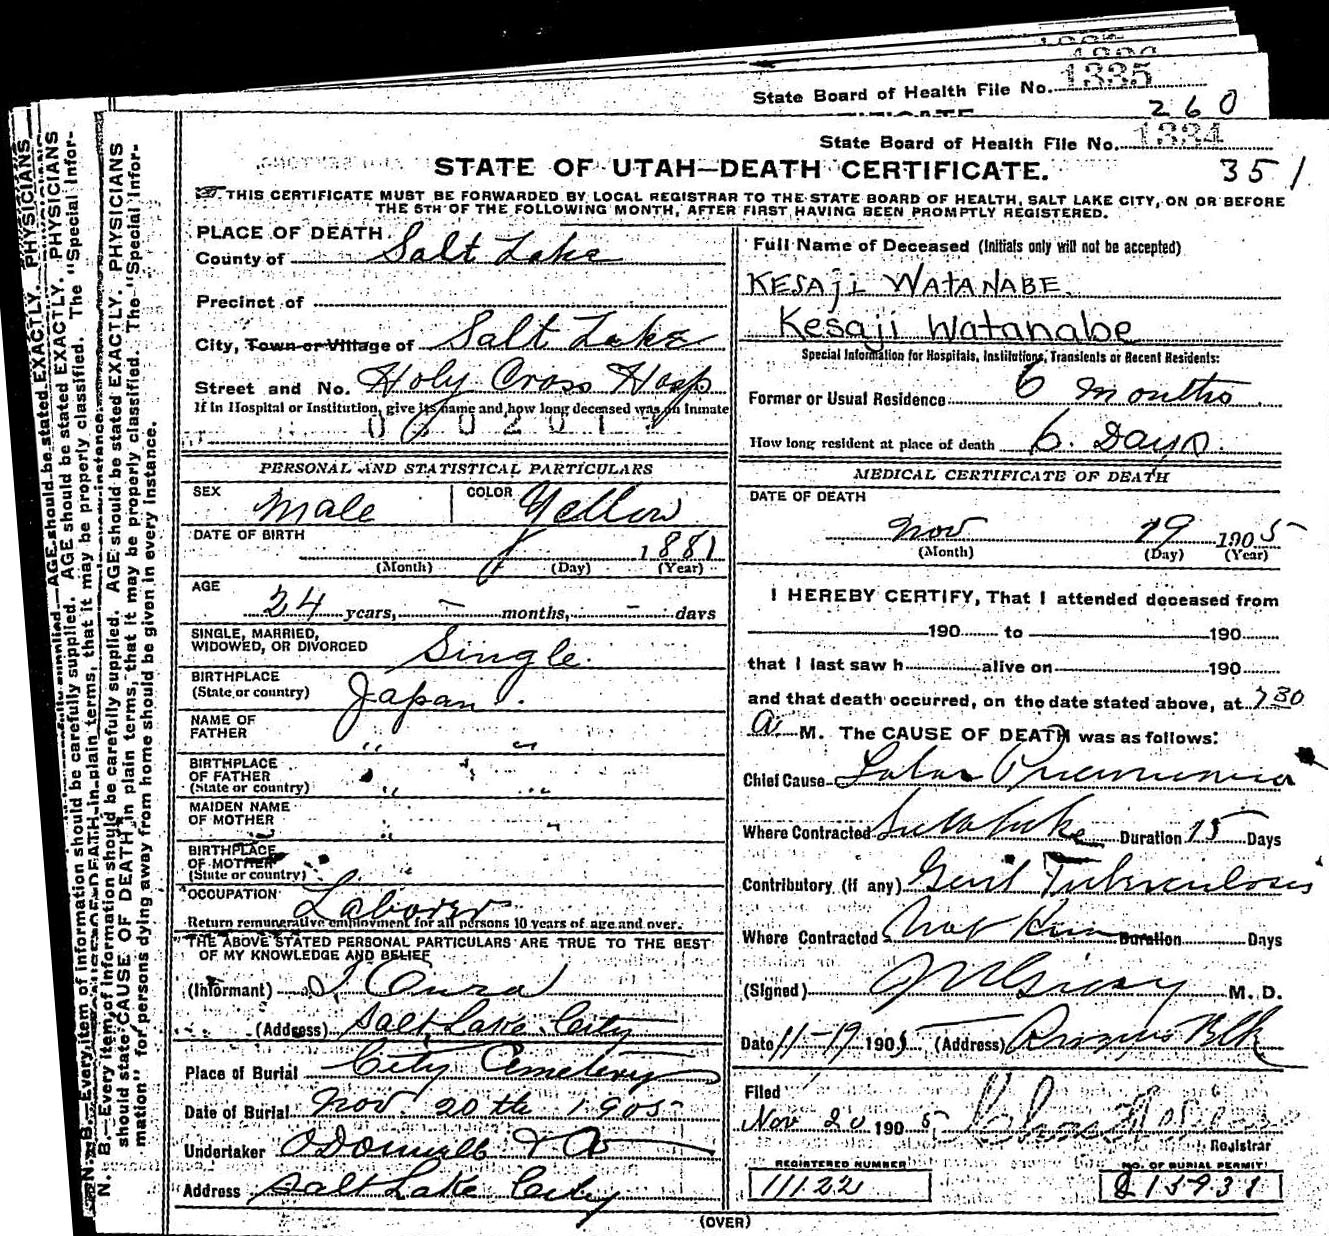 State Board of Health File No. 1335
260
State Board of Health File No. 1334
STATE OF UTAH—DEATH CERTIFICATE. 351
THIS CERTIFICATE MUST BE FORWARDED BY LOCAL REGISTRAR TO THE STATE BOARD OF HEALTH, SALT LAKE CITY, ON OR BEFORE
THE 5TH OF THE FOLLOWING MONTH, AFTER FIRST HAVING BEEN PROMPTLY REGISTERED.
PLACE OF DEATH
County of Salt Lake
Precinct of
City, Town or Village of Salt Lake
Street and No. Holy Cross Hosp
If in Hospital or Institution, give its name and how long deceased was an Inmate
PERSONAL AND STATISTICAL PARTICULARS
SEX Male COLOR Yellow
DATE OF BIRTH 1881
(Month) (Day) (Year)
AGE
24 years, - months, - days
SINGLE, MARRIED,
WIDOWED, OR DIVORCED Single.
BIRTHPLACE
(State or country) Japan.
NAME OF
FATHER " "
BIRTHPLACE
OF FATHER
(State or country) " "
MAIDEN NAME
OF MOTHER " "
BIRTHPLACE
OF MOTHER
(State or country)
OCCUPATION Laborer
Return remunerative employment for all persons 10 years of age and over.
THE ABOVE STATED PERSONAL PARTICULARS ARE TRUE TO THE BEST
OF MY KNOWLEDGE AND BELIEF
(Informant)
(Address) Salt Lake City
Place of Burial City Cemetery
Date of Burial Nov 20th 1905
Undertaker O'Donnell & Co
Address Salt Lake City
Full Name of Deceased (Initials only will not be accepted)
KESAJI WATANABE
Kesaji Watanabe
Special Information for Hospitals, Institutions, Transients or Recent Residents:
Former or Usual Residence 6 months
How long resident at place of death 6. Days.
MEDICAL CERTIFICATE OF DEATH
DATE OF DEATH
Nov 19 1905
(Month) (Day) (Year)
I HEREBY CERTIFY, That I attended deceased from
190 to 190
that I last saw h alive on 190
and that death occurred, on the date stated above, at 730
a. M. The CAUSE OF DEATH was as follows:
Chief Cause Lobar Pneumonia
Where Contracted Duration 15 Days
Contributory (if any) Genl Tuberculosis
Where Contracted Not Known Duration Days
(Signed) M. D.
Date 11-19 1905 (Address) Blk
Filed
Nov 20 1905
Registrar
REGISTERED NUMBER
11122
NO. OF BURIAL PERMIT
(OVER)
N. B.—Every item of information should be carefully supplied. AGE should be stated EXACTLY. PHYSICIANS
should state CAUSE OF DEATH in plain terms, that it may be properly classified. The "Special Infor-
mation" for persons dying away from home should be given in every instance.